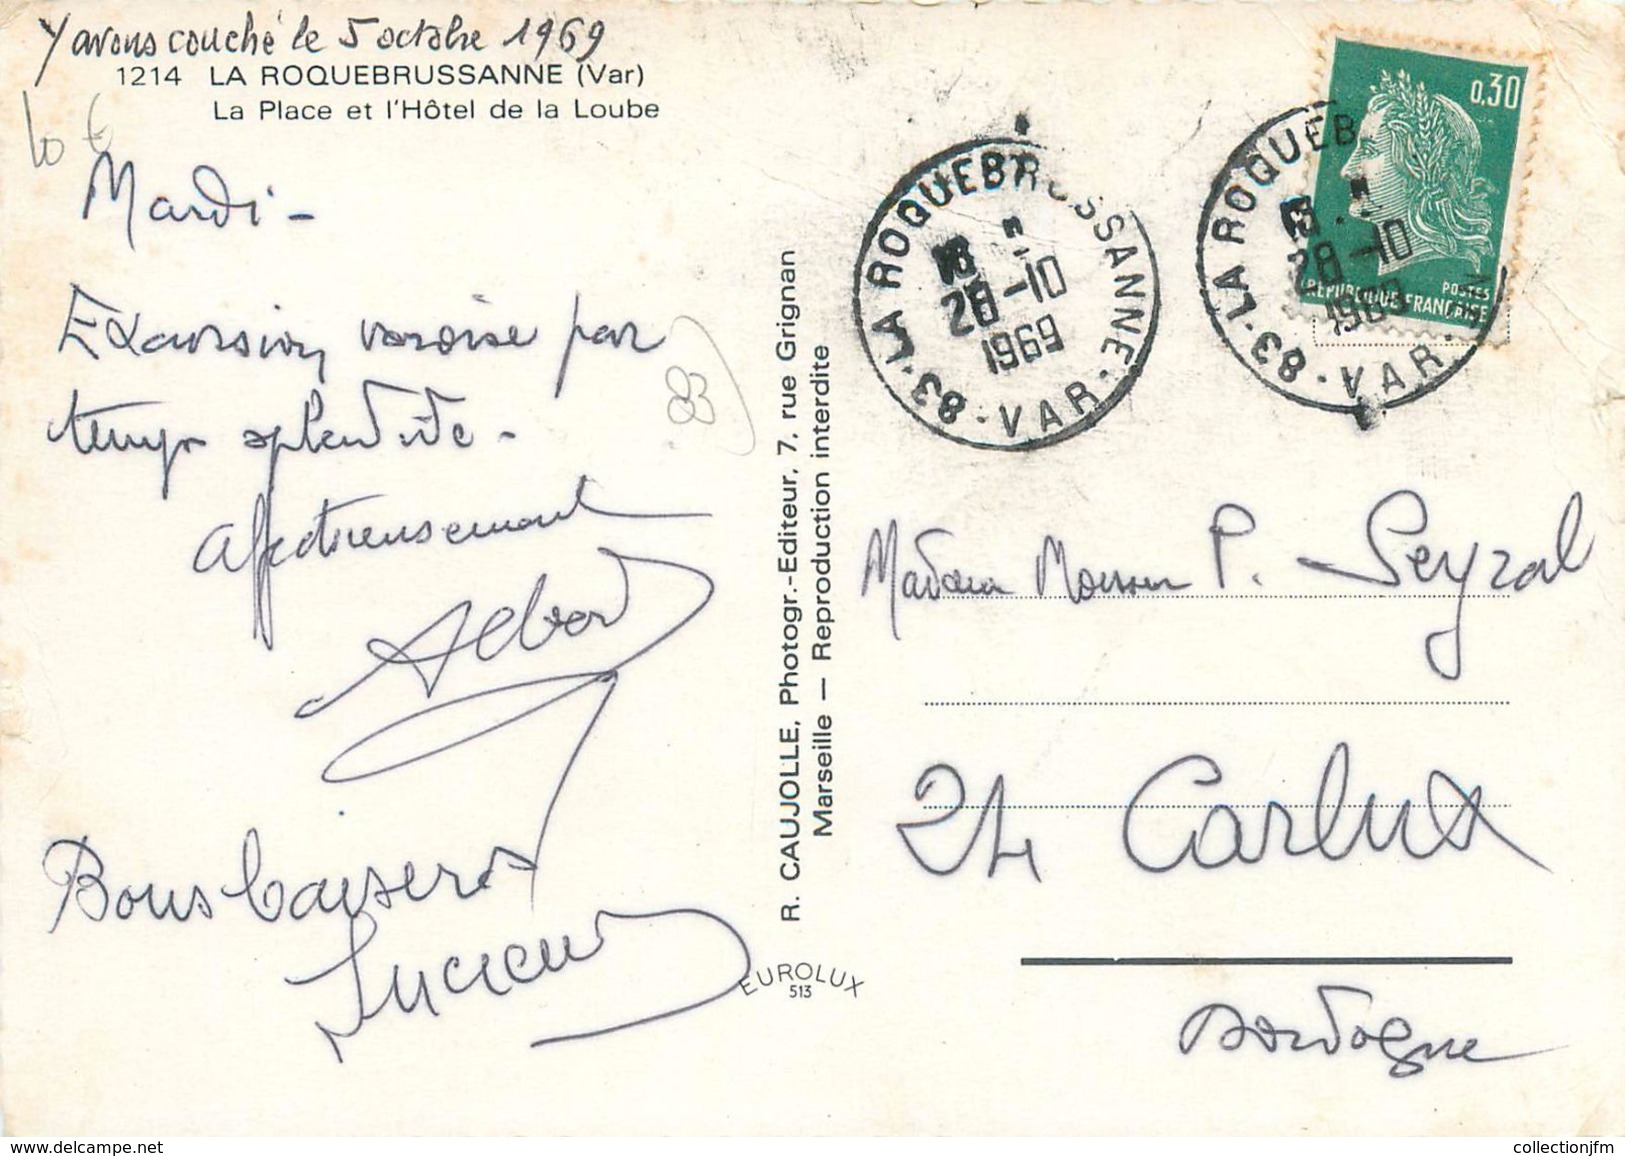 Y avons couché le 5 octobre 1969
1214 LA ROQUEBRUSSANNE (Var)
La Place et l'Hôtel de la Loube
10 €
Mardi -
Excursion varoise par
temps splendide -
affectueusement
Bons baisers
Lucienne
83
R. CAUJOLLE, Photogr.-Editeur, 7, rue Grignan
Marseille — Reproduction interdite
EUROLUX
513
83 - LA ROQUEBRUSSANNE - VAR
28-10
1969
83 - LA ROQUEB
VAR
28-10
1969
0,30
POSTES
REPUBLIQUE FRANÇAISE
Madame Monsieur P. Seyral
24 Carlux
Dordogne
collectionjfm